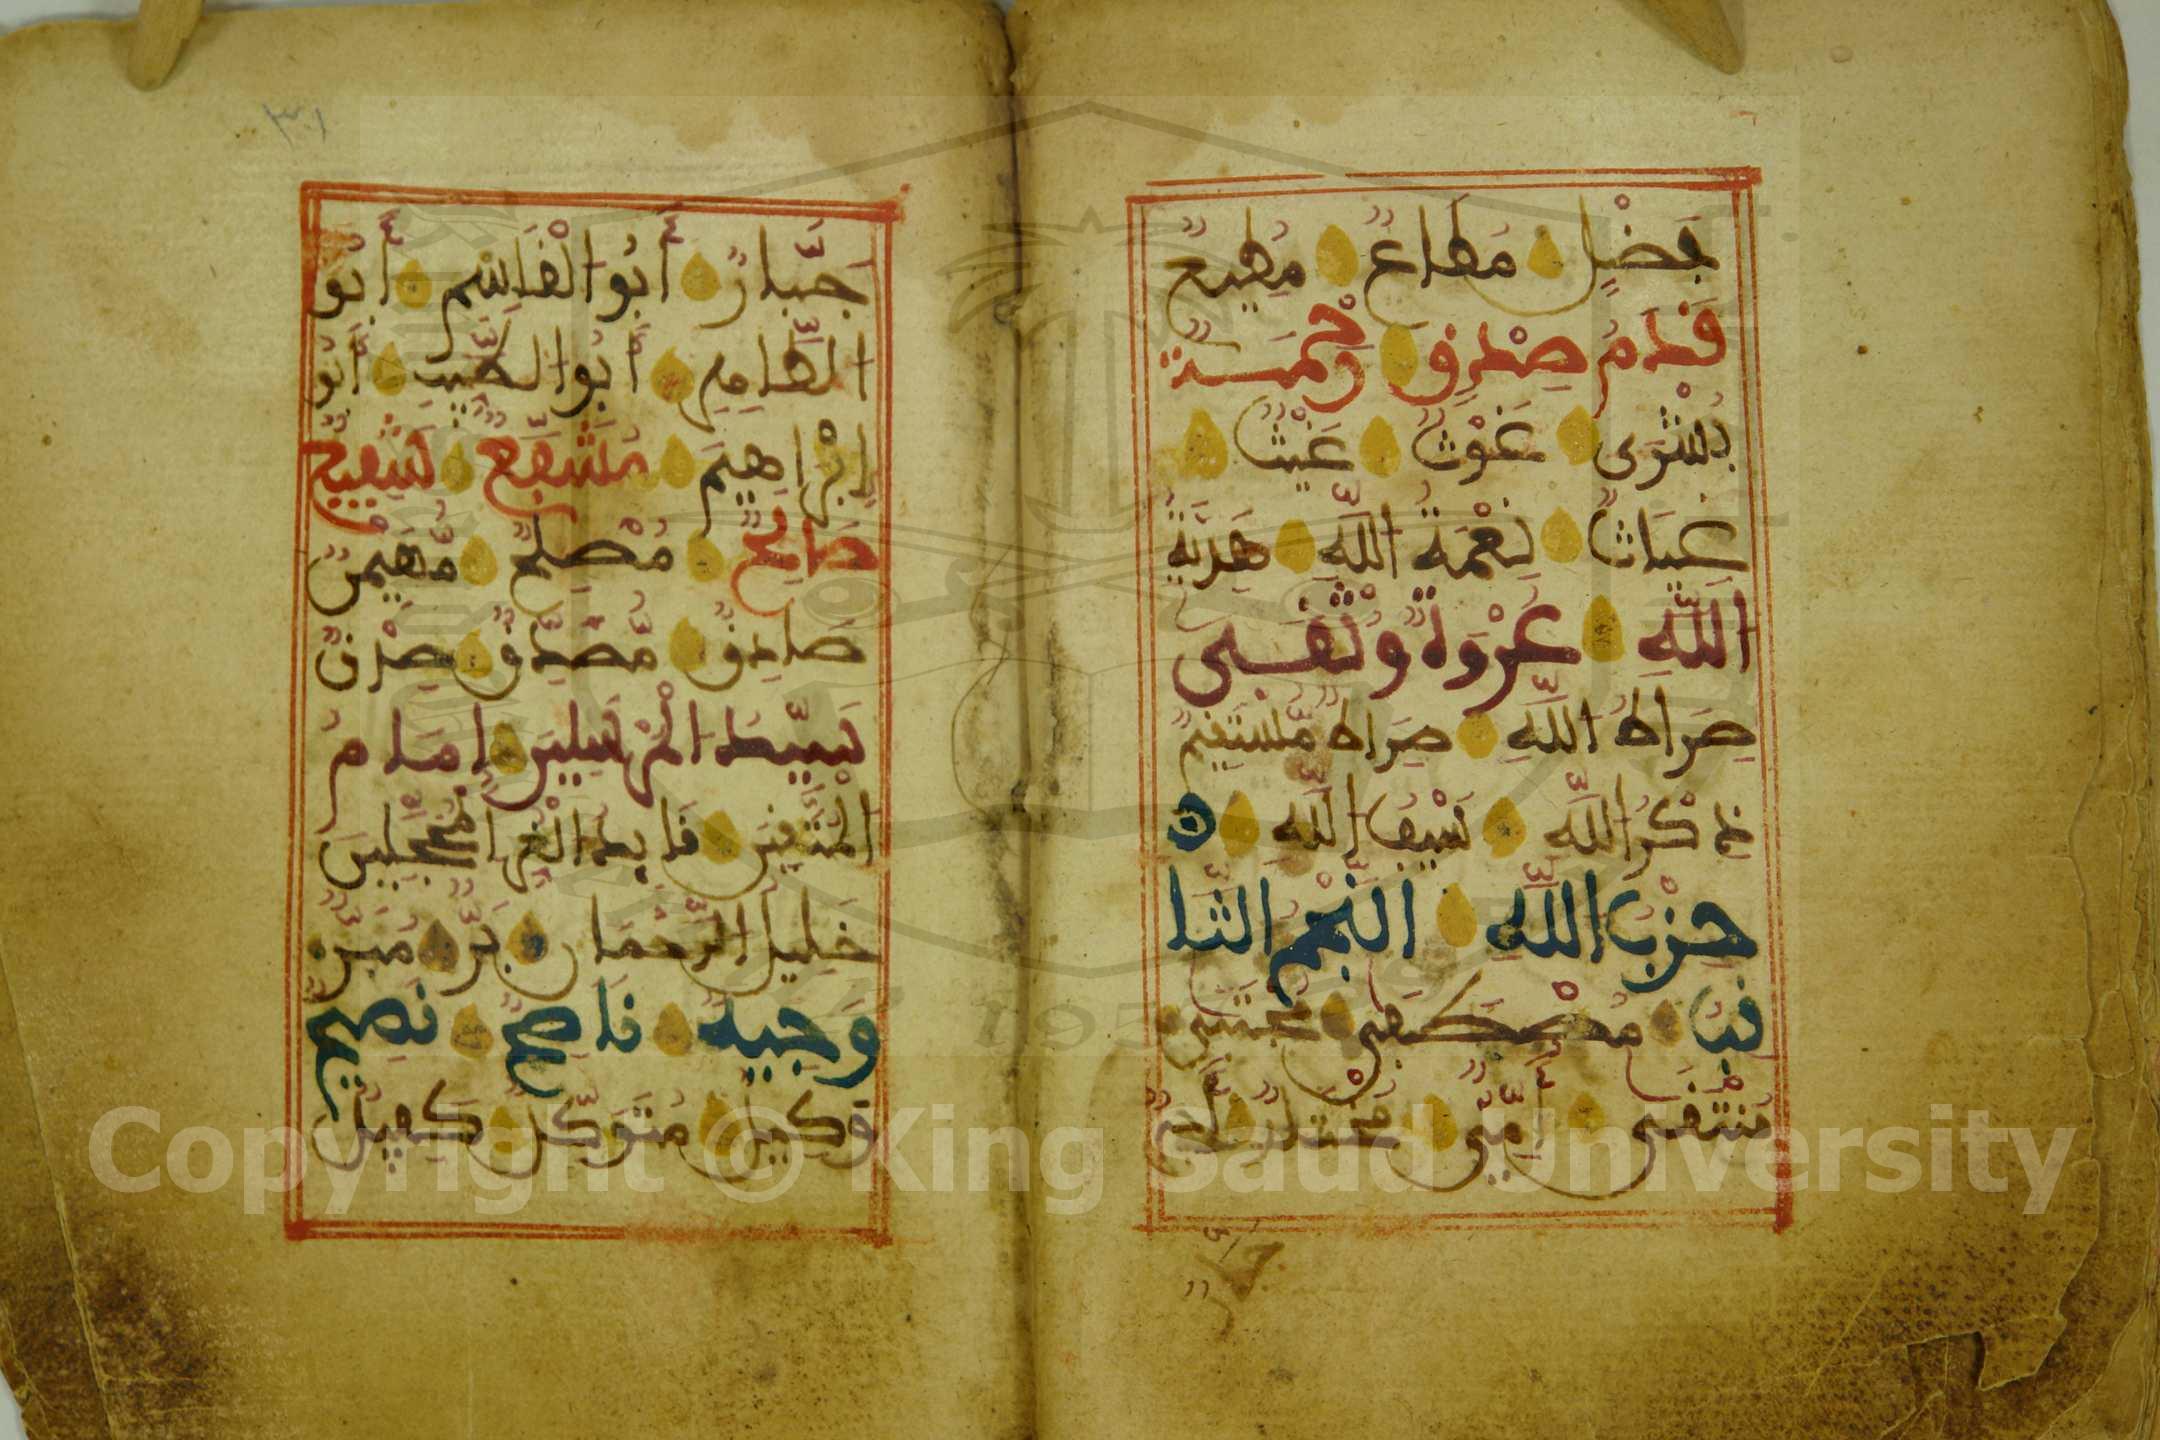 بفضل مطاع مطيع
قدم صدق رحمة
بشرى غوث غيث
غياث نعمة الله هدية
الله عروة وثقى
صراط الله صراط مستقيم
ذكر الله سيف الله
حزب الله النجم الثا
قب مصطفى مجتبى
منتقى أمي مختار أجير
جبار
٣١
جبار أبو القاسم أبو
الطاهر أبو الطيب أبو
إبراهيم مشفع شفيع
صالح مصلح مهيمن
صادق مصدق صدق
سيد المرسلين إمام
المتقين قايد الغر المحجلين
خليل الرحمان بر مبر
وجيه ناصح نصيح
وكيل متوكل كفيل
Copyright © King Saud University